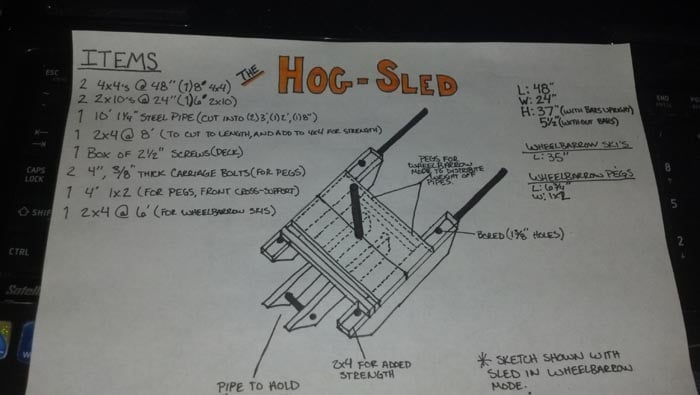 ITEMS
THE HOG-SLED
2 4x4's @ 48" (1) 8' 4x4)
2 2x10's @ 24" (1) 6' 2x10)
1 10' 1 1/4" STEEL PIPE (CUT INTO (2) 3', (1) 2', (1) 8")
1 2x4 @ 8' (TO CUT TO LENGTH, AND ADD TO 4x4 FOR STRENGTH)
1 BOX OF 2 1/2" SCREWS (DECK)
2 4", 3/8" THICK CARRIAGE BOLTS (FOR PEGS)
1 4' 1x2 (FOR PEGS, FRONT CROSS-SUPPORT)
1 2x4 @ 6' (FOR WHEELBARROW SKIS)
L: 48"
W: 24"
H: 37" (WITH BARS UPRIGHT)
5 1/2" (WITHOUT BARS)
WHEELBARROW SKI'S
L: 35"
WHEELBARROW PEGS
W: 1x2
PEGS FOR
WHEELBARROW
MODE TO DISTRIBUTE
WEIGHT OFF
PIPES.
BORED (1 3/8" HOLES)
2x4 FOR ADDED
STRENGTH
PIPE TO HOLD
* SKETCH SHOWN WITH
SLED IN WHEELBARROW
MODE.
ESC
CAPS
LOCK
SHIF
CTRL
Satelli